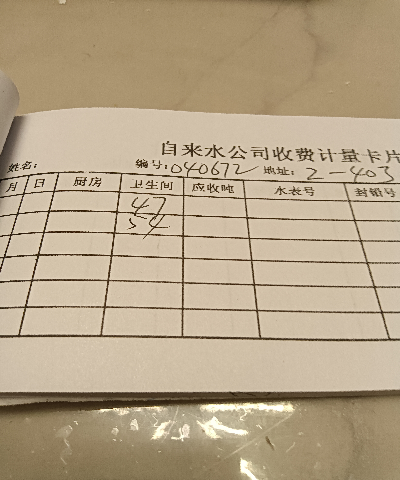 自来水公司收费计量卡片
姓名： 编号：040672 地址：2-403
月 日 厨房 卫生间 应收吨 水表号 封铅号
47
54